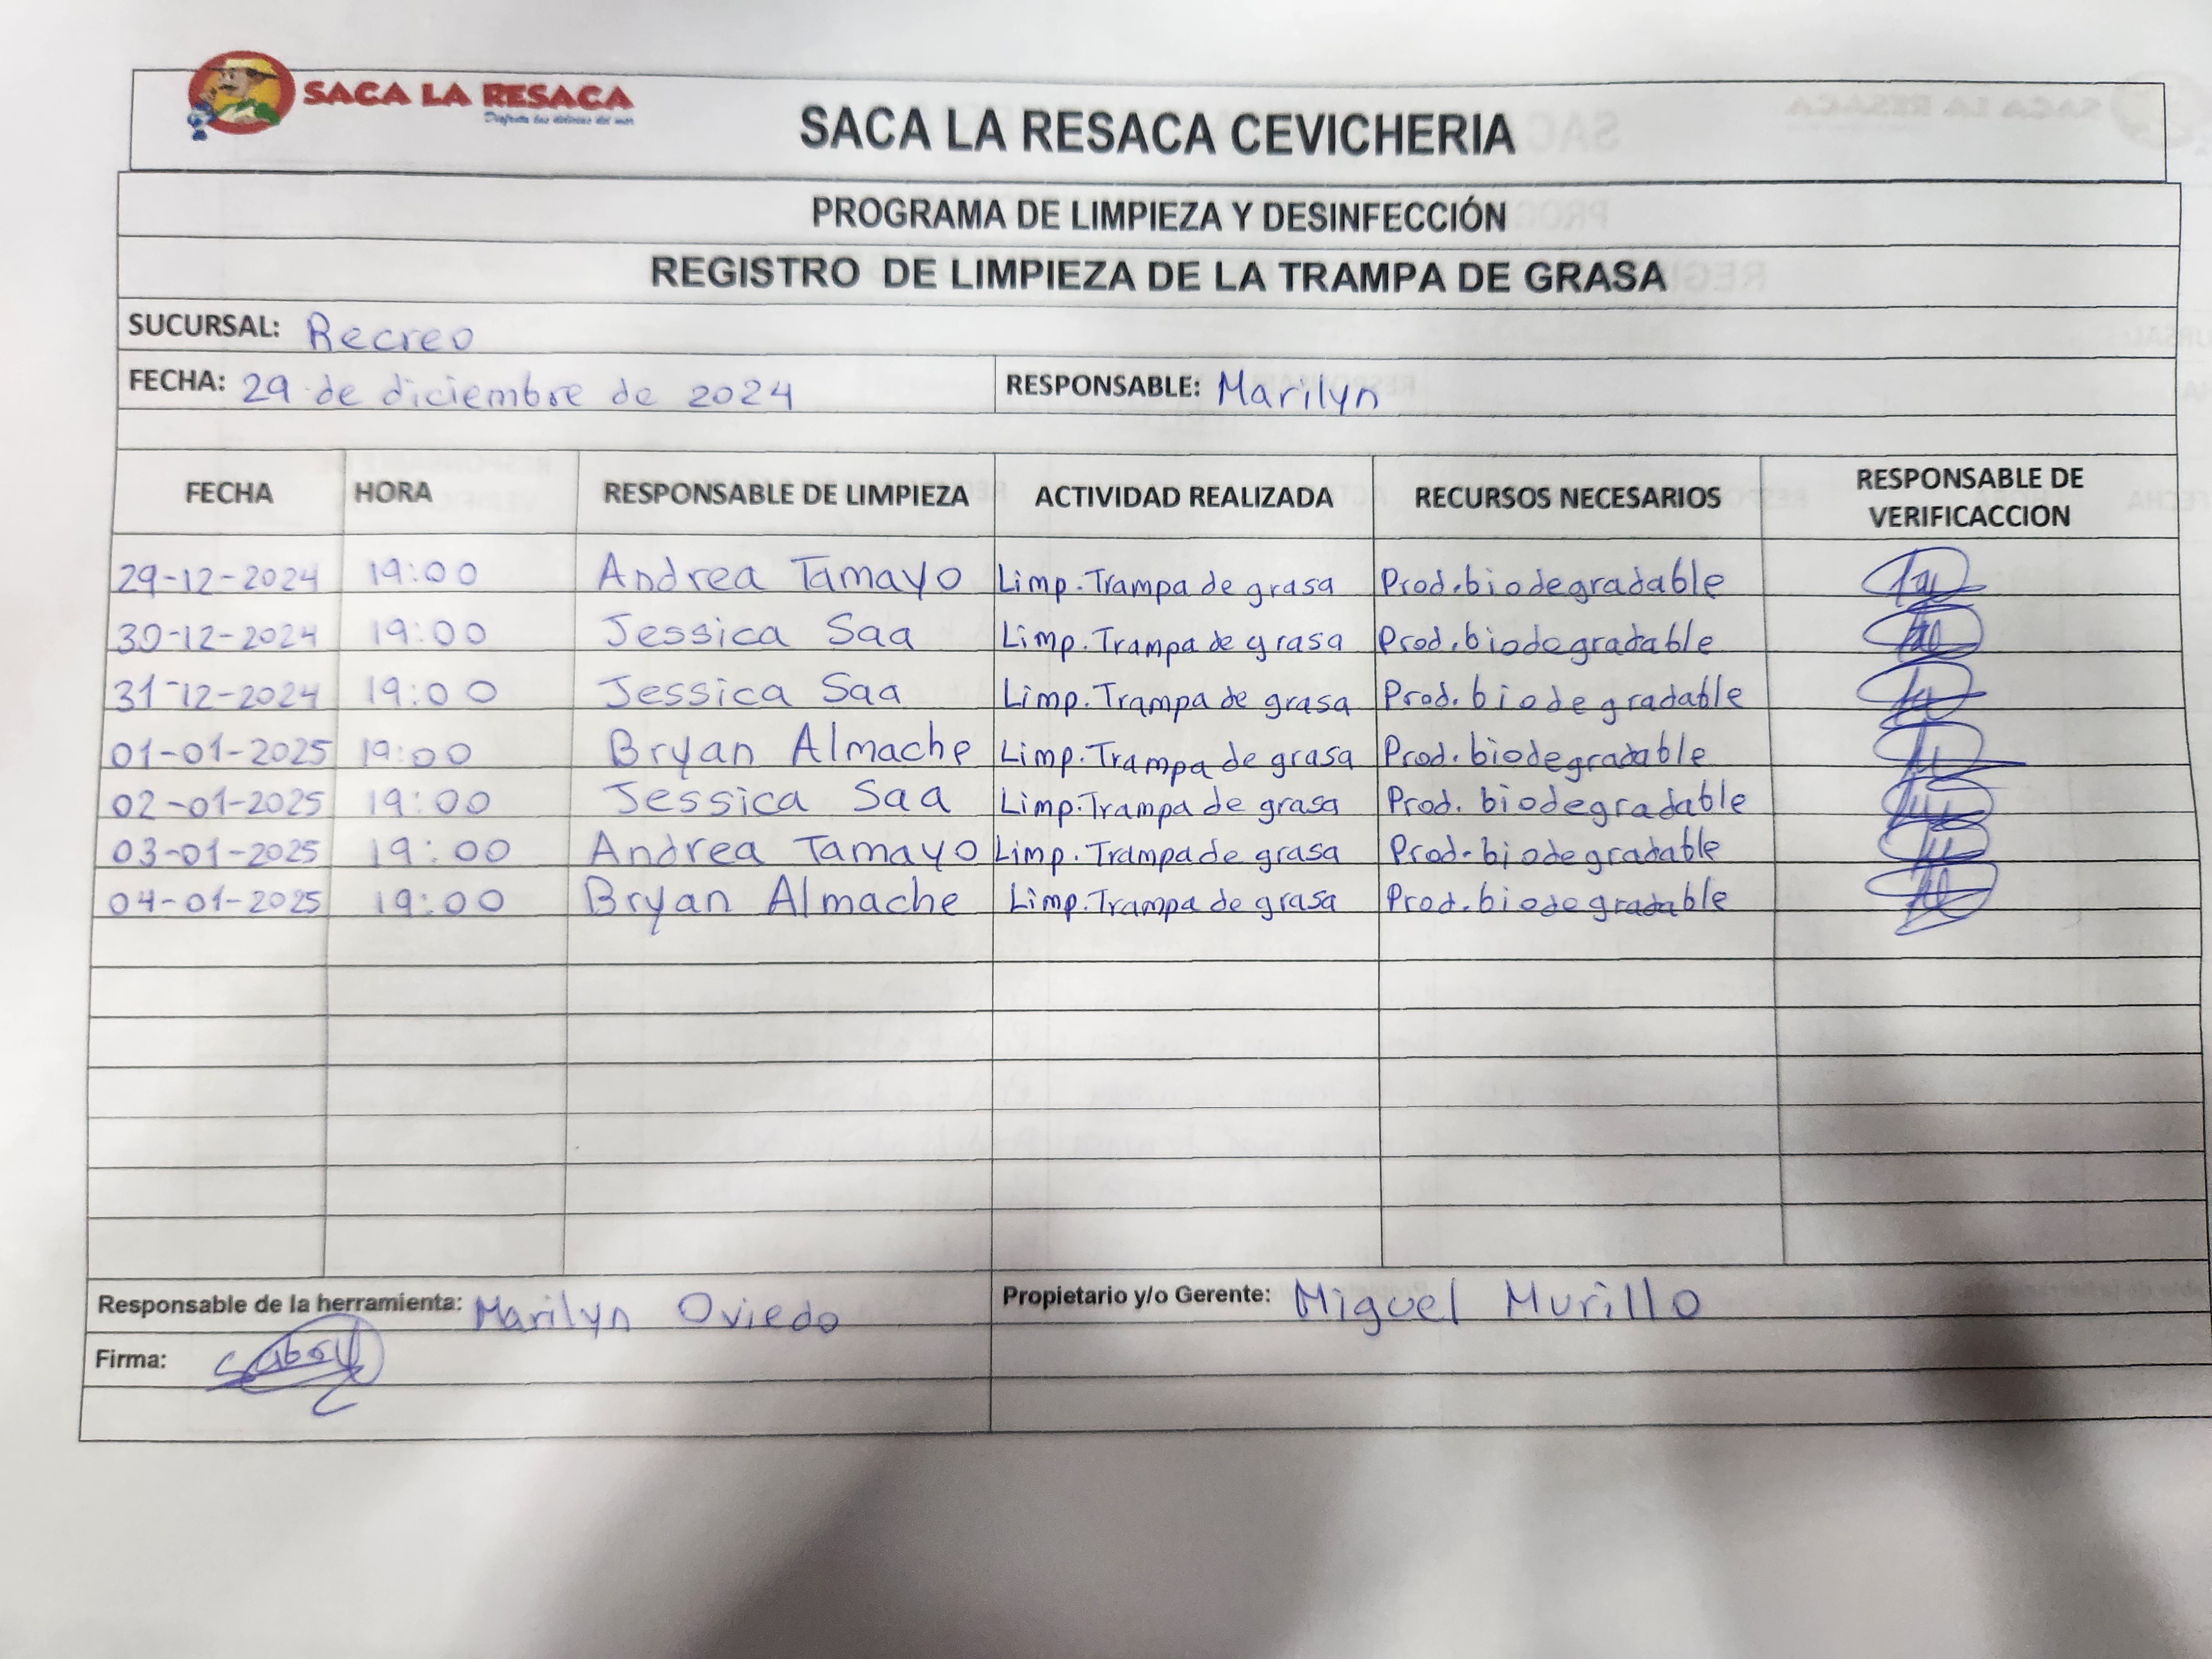 SACA LA RESACA
Disfruta las delicias del mar
SACA LA RESACA CEVICHERIA
PROGRAMA DE LIMPIEZA Y DESINFECCIÓN
REGISTRO DE LIMPIEZA DE LA TRAMPA DE GRASA
SUCURSAL: Recreo
FECHA: 29 de diciembre de 2024 RESPONSABLE: Marilyn
FECHA HORA RESPONSABLE DE LIMPIEZA ACTIVIDAD REALIZADA RECURSOS NECESARIOS RESPONSABLE DE VERIFICACCION
29-12-2024 19:00 Andrea Tamayo Limp. Trampa de grasa Prod. biodegradable
30-12-2024 19:00 Jessica Saa Limp. Trampa de grasa Prod. biodegradable
31-12-2024 19:00 Jessica Saa Limp. Trampa de grasa Prod. biodegradable
01-01-2025 19:00 Bryan Almache Limp. Trampa de grasa Prod. biodegradable
02-01-2025 19:00 Jessica Saa Limp. Trampa de grasa Prod. biodegradable
03-01-2025 19:00 Andrea Tamayo Limp. Trampa de grasa Prod. biodegradable
04-01-2025 19:00 Bryan Almache Limp. Trampa de grasa Prod. biodegradable
Responsable de la herramienta: Marilyn Oviedo Propietario y/o Gerente: Miguel Murillo
Firma: